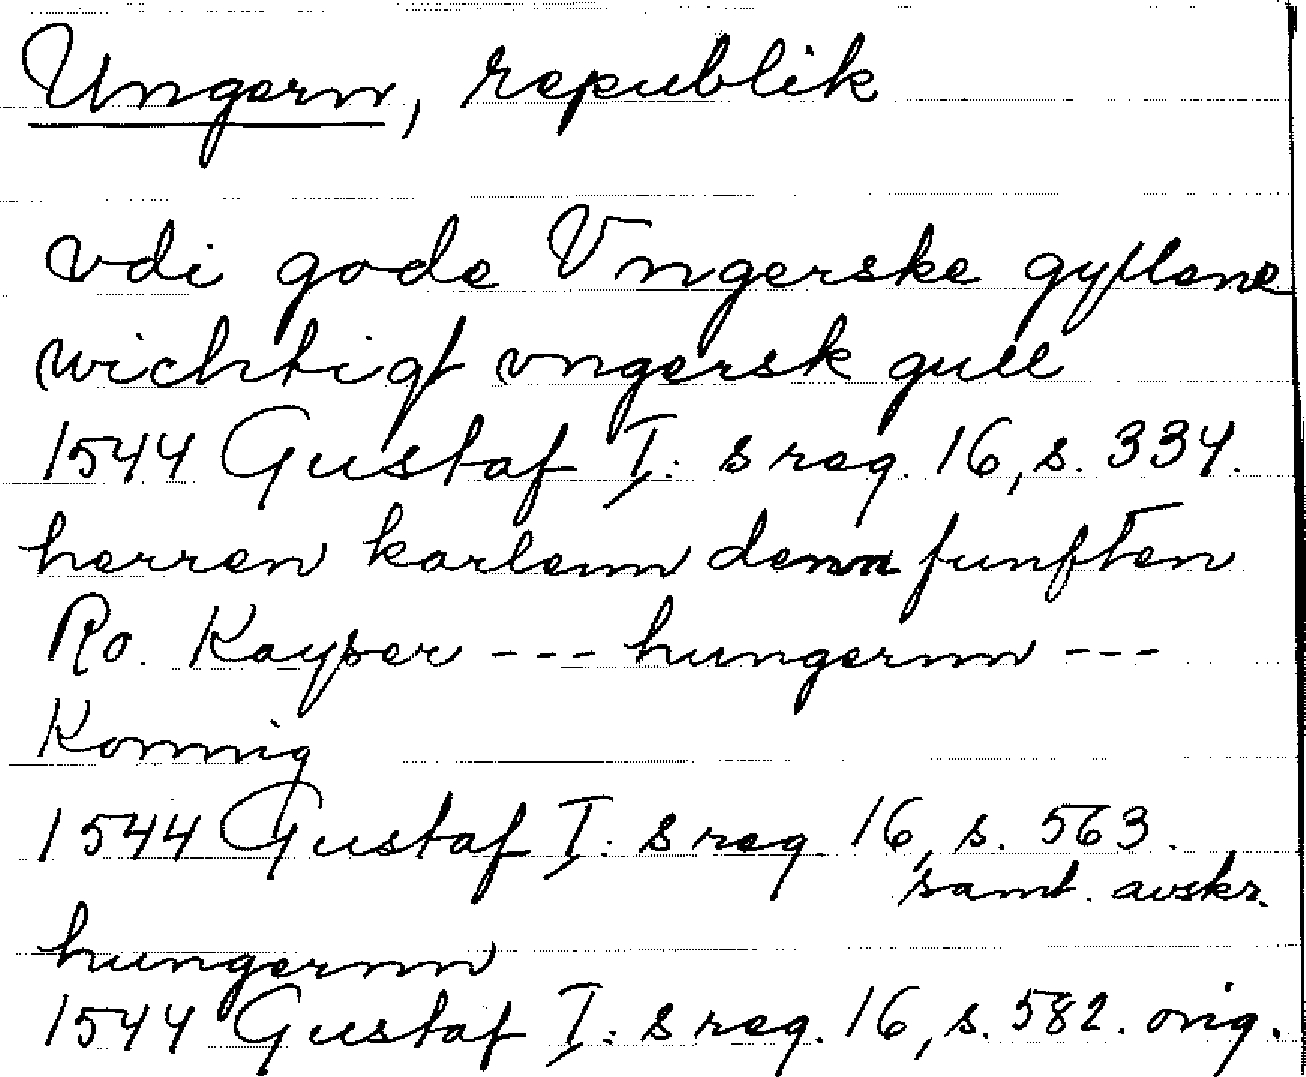 Ungern, republik
vdi gode Vngerske gyllene
wichtigt vngersk gull
1544 Gustaf I:s reg. 16, s. 334.
herren karlenn denn funfften
Ro. Kayser --- hungernn ---
Konnig
1544 Gustaf I:s reg 16, s. 563.
samt. avskr.
hungernn
1544 Gustaf I:s reg. 16, s. 582. orig.